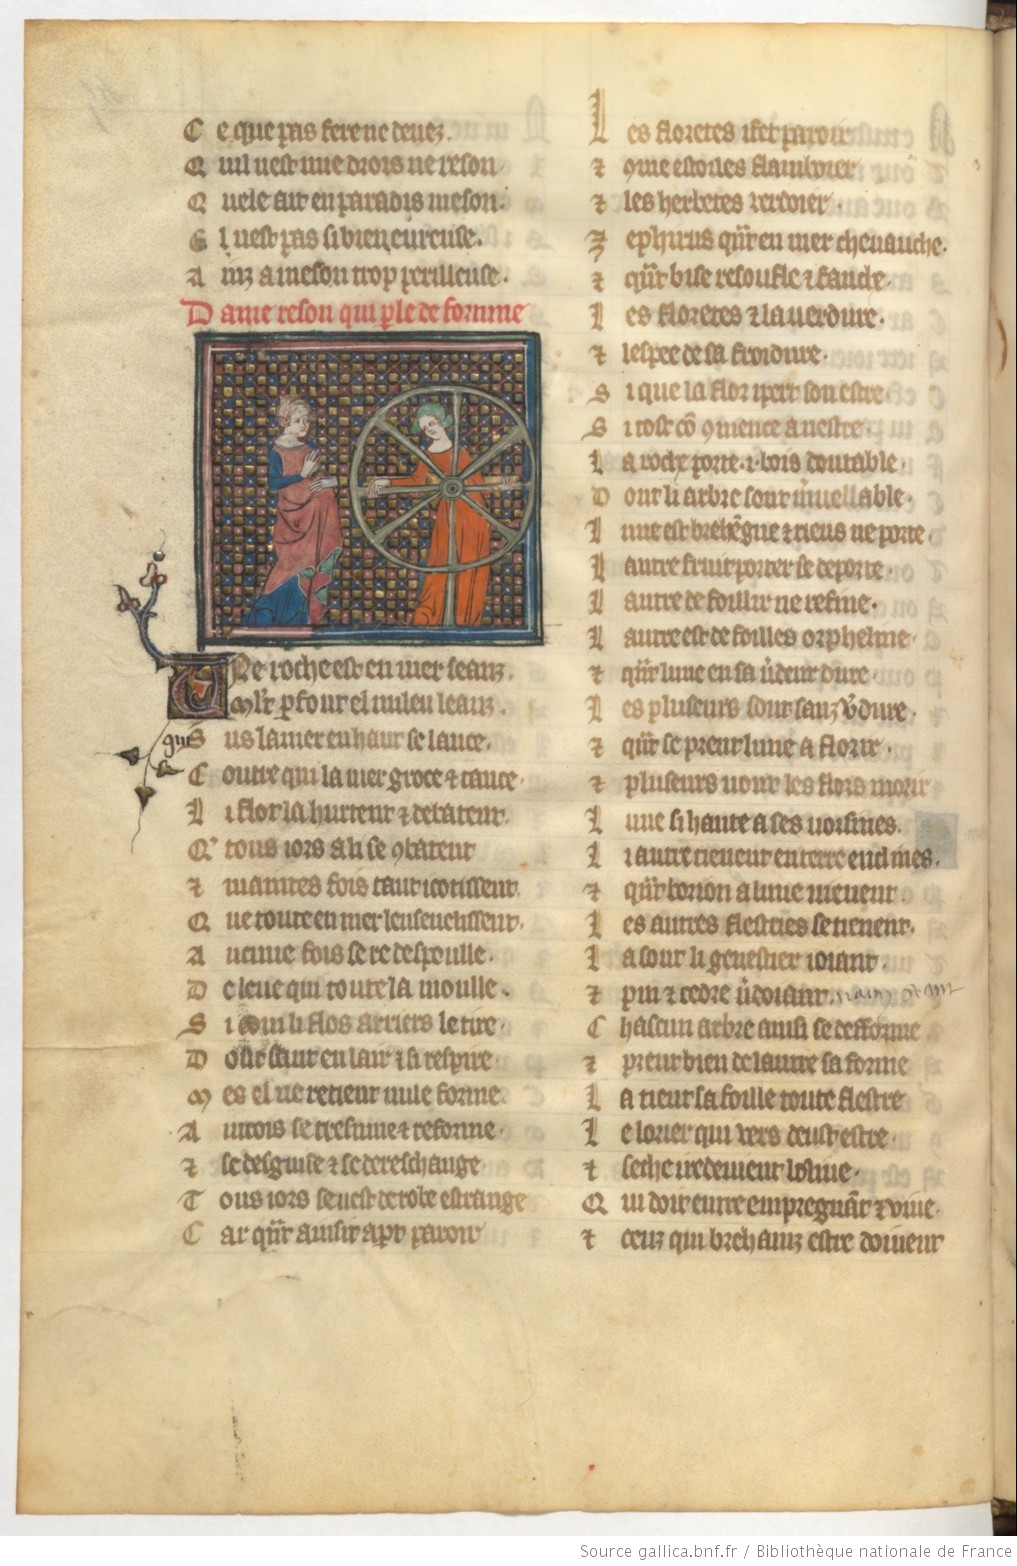 Ce que pas fere ne devez
Quil nest nne drois ne reson
Quele ait en paradis meson.
El nest pas si bien eureuse.
Ainz a meson trop perilleuse.
Dame reson qui ple de fortune
Une roche est en mer seanz.
Mlt pfont el milieu leanz.
qui Sus la mer en haut se lance.
Contre qui la mer groce et tance.
Li flot la hurtent et debatent.
Q' tous iors a li se 9batent
et maintes fois tant i cotissent.
Que toute en mer lensevelissent.
Aucune fois se redespoulle.
De leue qui toute la moulle.
Si com li flos arriers se tire.
Dont saut en lair et si respire.
Mes el ne retient nule forme.
Aincois se tresmue et reforme.
et se desguise et se dereschange.
Tous iors se vest de robe estrange
Car qnt ainsi apt paroir
Les floretes i fet paroir
et 9me estoiles flamboier
et les herbetes verdoier.
Zephirus qnt en mer chevauche.
et qnt bise resoufle et fauche.
Les floretes et la verdure.
et lespee de sa froidure.
Si que la flor i pert son estre
Si tost com 9mence a nestre
La roche porte .i. bois doutable.
Dont li arbre sont mveillable.
Lune est brehaigne et riens ne porte.
Lautre fruit porter se deporte.
Lautre de foillir ne refine.
Lautre est de foilles orpheline
et qnt lune en sa vdeur dure.
Les pluseurs sont sanz vdure.
et qnt se prent lune a florir.
et pluseurs vont les flors morir
Lune si hauce a ses voisines.
Li autre tienent en terre enclines.
et qnt borion a lune vienent.
Les autres flestries se tienent.
La sont li genestier ioiant.
et pin et cedre
Chascun arbre ainsi se defforme
et prent bien de lautre la forme
La tient sa foille toute flestre
Le lorier qui vers deust estre.
et seche i redevient lolive.
Qui doit estre empregnant et vive.
et cenz qui brehainz estre doivent
Source gallica.bnf.fr / Bibliothèque nationale de France